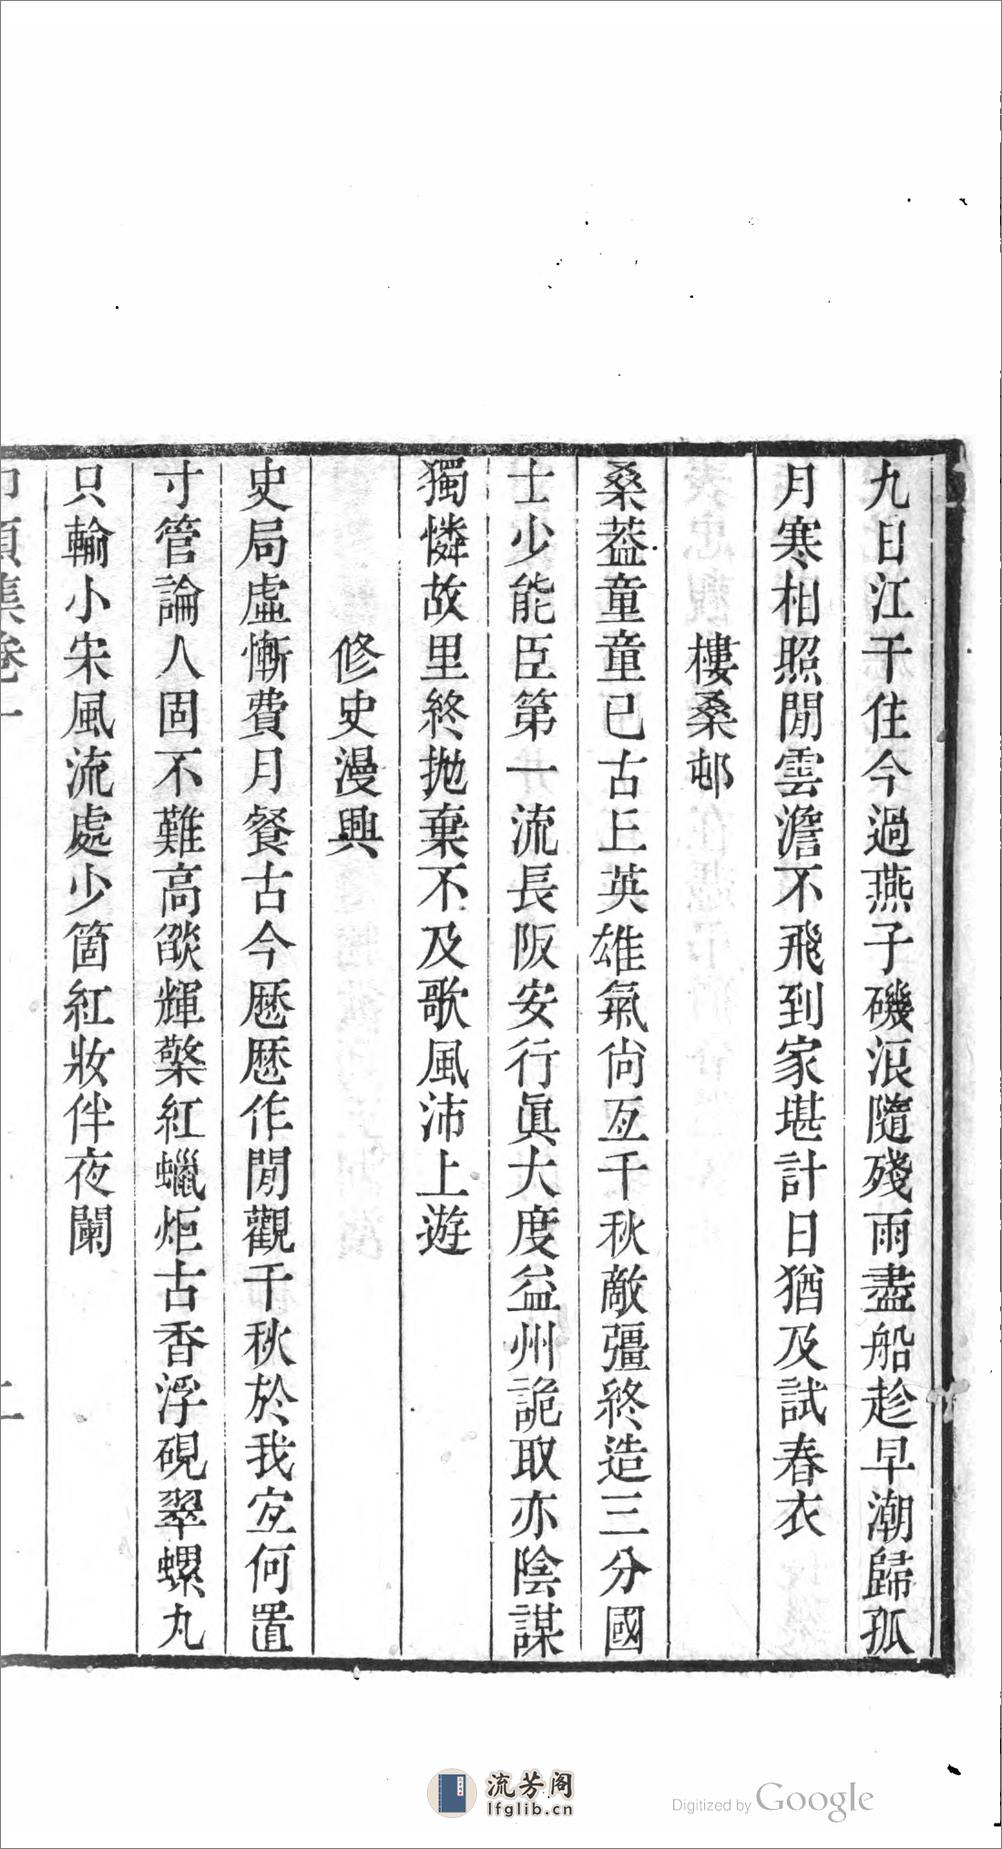 九日江干住今過燕子磯浪隨殘雨盡船趁早潮歸孤
月寒相照閒雲澹不飛到家堪計日猶及試春衣
樓桑邨
桑葢童童已古丘英雄氣尙亙千秋敵彊終造三分國
士少能臣第一流長阪安行眞大度益州詭取亦陰謀
獨憐故里終拋棄不及歌風沛上遊
修史漫興
史局虛慚費月餐古今歷歷作閒觀千秋於我定何置
寸管論人固不難高燄輝檠紅蠟炬古香浮硯翠螺丸
只輸小宋風流處少箇紅妝伴夜闌
流芳阁
lfglib.cn
Digitized by Google